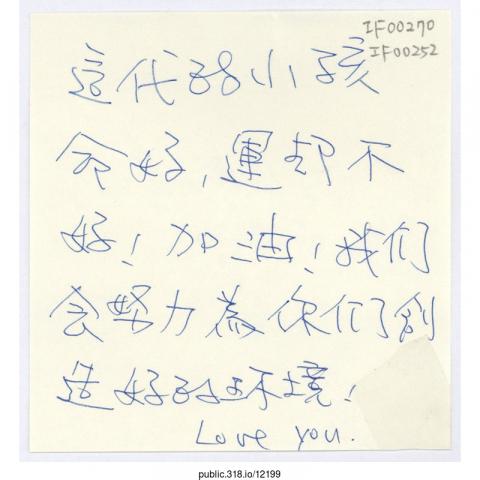 IF00270
IF00252
這代的小孩
命好，運却不
好！加油！我们
会努力為你们創
造好的环境！
Love you.
public.318.io/12199